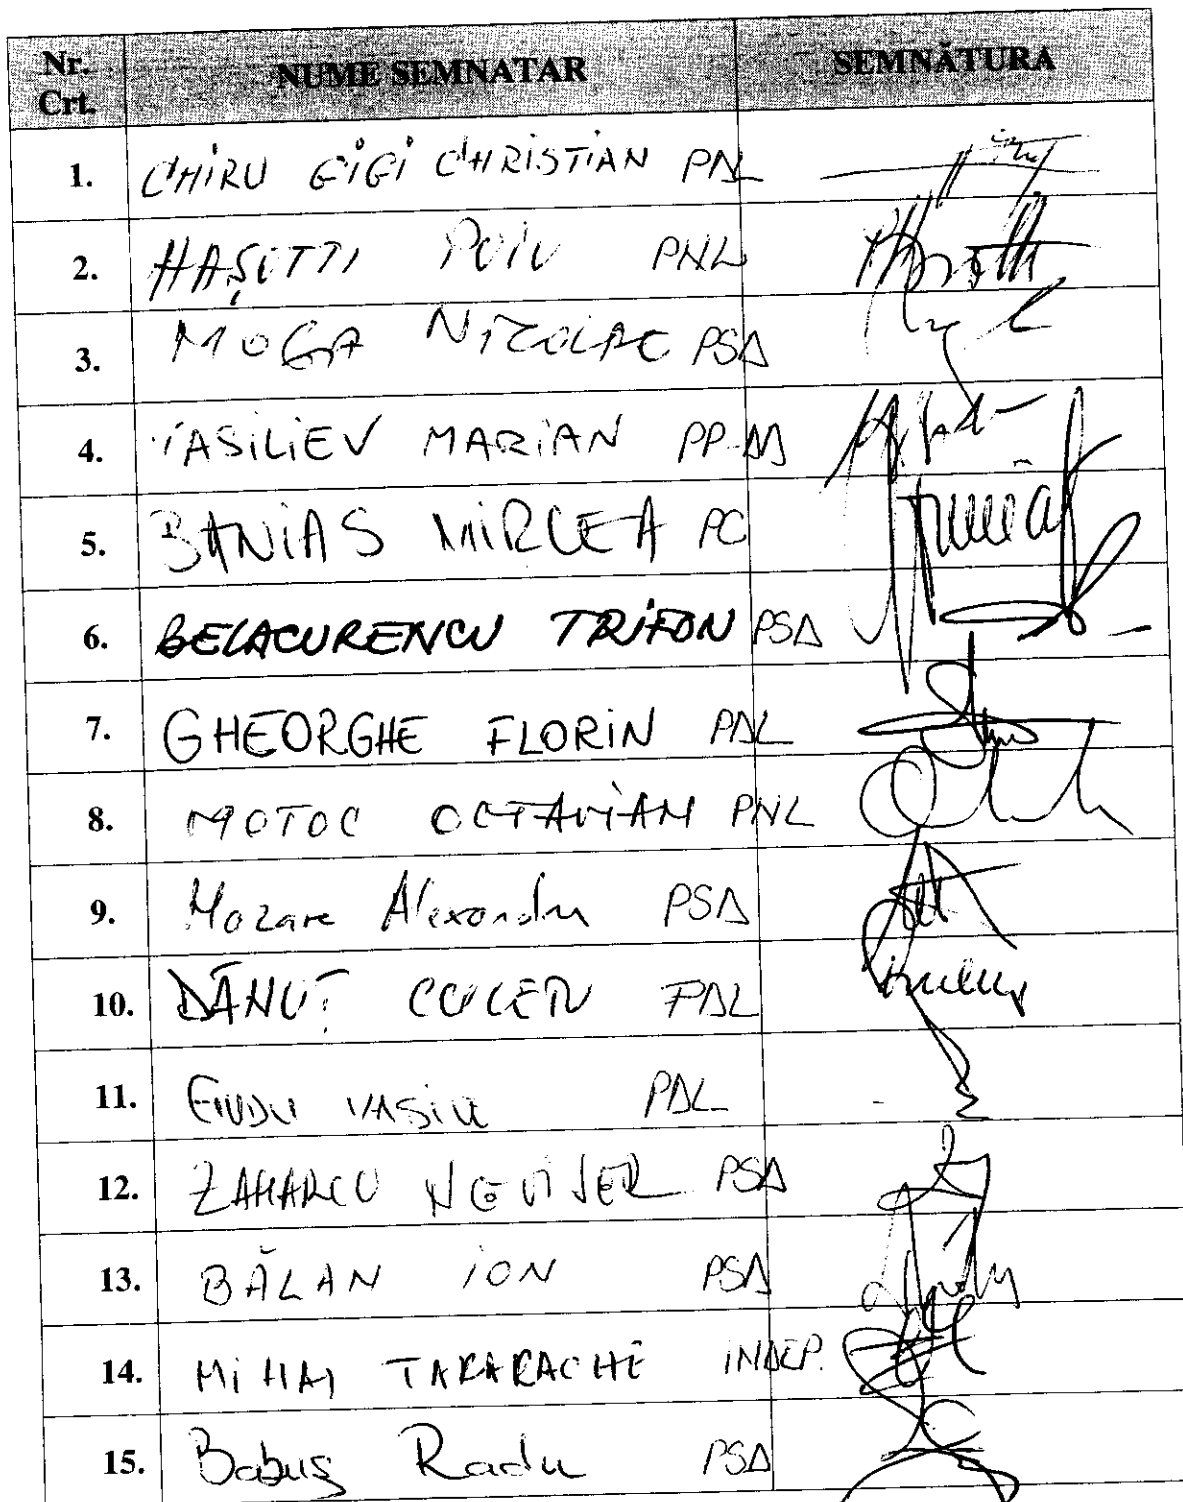 Nr. Crt. NUME SEMNATAR SEMNĂTURA
1. CHIRU GIGI CHRISTIAN PDL
2. HAȘOTTI PUIU PNL
3. MOGA NICOLAE PSD
4. VASILIEV MARIAN PP-DD
5. BANIAS MIRCEA PC
6. BELACURENCU TRIFON PSD
7. GHEORGHE FLORIN PDL
8. MOTOC OCTAVIAN PNL
9. Mazare Alexandru PSD
10. DĂNUȚ CULETU PDL
11. VASILE PDL
12. ZAHARCU NEVIJER PSD
13. BĂLAN ION PSD
14. MIHAI TARARACHE INDEP.
15. Babuș Radu PSD